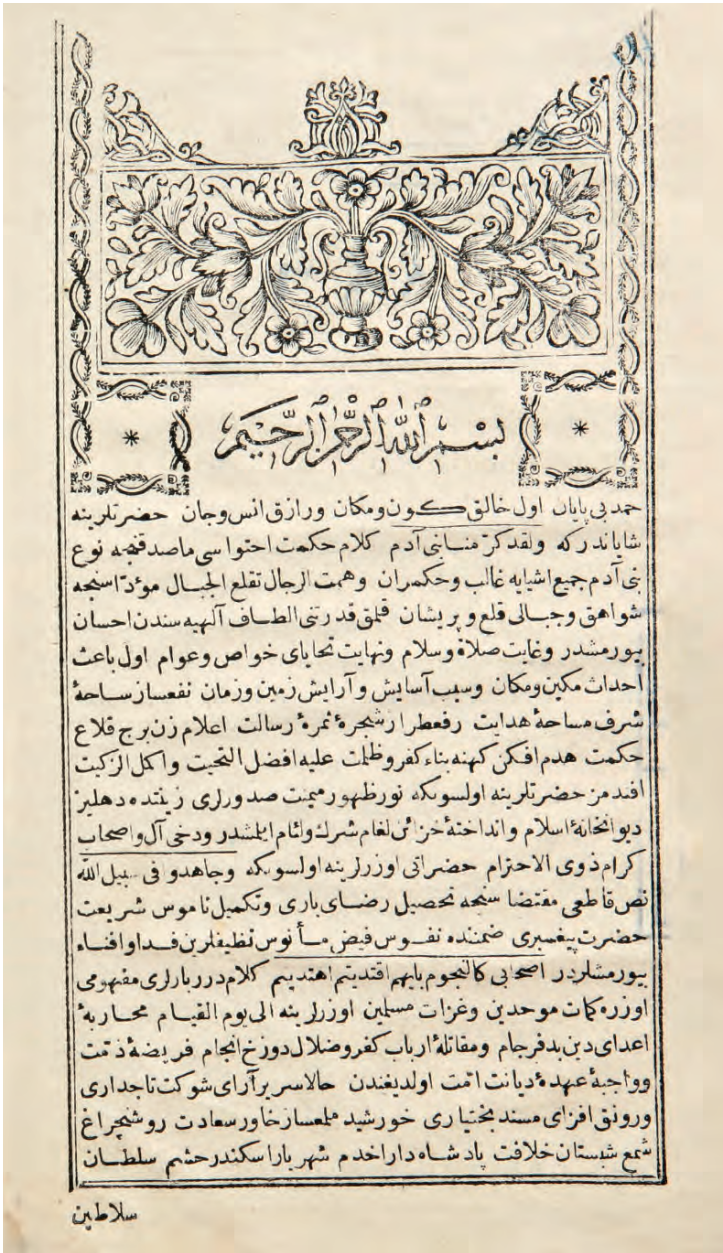 بسم الله الرحمن الرحيم
حمد بی پایان اول خالق كون ومكان ورازق انس وجان حضرتلرينه
شاياندركه ولقد كرّمنا بنی آدم كلام حكمت احتواسی ماصدقنجه نوع
بنی آدم جميع اشيايه غالب وحكمران وهمت الرجال تقلع الجبال مؤدّاسنجه
شواهق وجبالی قلع و پريشان قلمق قدرتنی الطاف آلهيه سندن احسان
بيورمشدر وغايت صلاة وسلام ونهايت تحايای خواص وعوام اول باعث
احداث مكين ومكان وسبب آسايش وآرايش زمين وزمان نفعساز ساحۀ
شرف مساحۀ هدايت رفعطراز شجرۀ ثمرۀ رسالت اعلام زن برج قلاع
حكمت هدم افكن كهنه بناء كفر وظلمت عليه افضل التحيت واكمل الزكيت
افندمز حضرتلرينه اولسونكه نور ظهور ميمنت صدورلری زينتده دهليز
ديوانخانۀ اسلام وانداختۀ خزائن لغام شرك ولئام ايلمشدر ودخی آل واصحاب
كرام ذوی الاحترام حضراتی اوزرلرينه اولسونكه وجاهدو فی سبيل الله
نص قاطعی مقتضاسنجه تحصيل رضای باری وتكميل ناموس شريعت
حضرت پيغمبری ضمننده نفوس فيض مأنوس نظيفلرين فدا وافناء
بيورمشلردر اصحابی كالنجوم بايهم اقتديتم اهتديتم كلام درربارلری مفهومی
اوزره كمات موحدين وغزات مسلمين اوزرلرينه الی يوم القيام محاربۀ
اعدای دين بدفرجام ومقاتلۀ ارباب كفر وضلال دوزخ انجام فريضۀ ذمت
وواجبۀ عهدۀ ديانت امّت اولديغندن حالا سرير آرای شوكت تاجداری
ورونق افزای مسند بختياری خورشيد ملعساز خاور سعادت روشنچراغ
شمع شبستان خلافت پادشاه دارا خدم شهريار اسكندر حشم سلطان
سلاطين